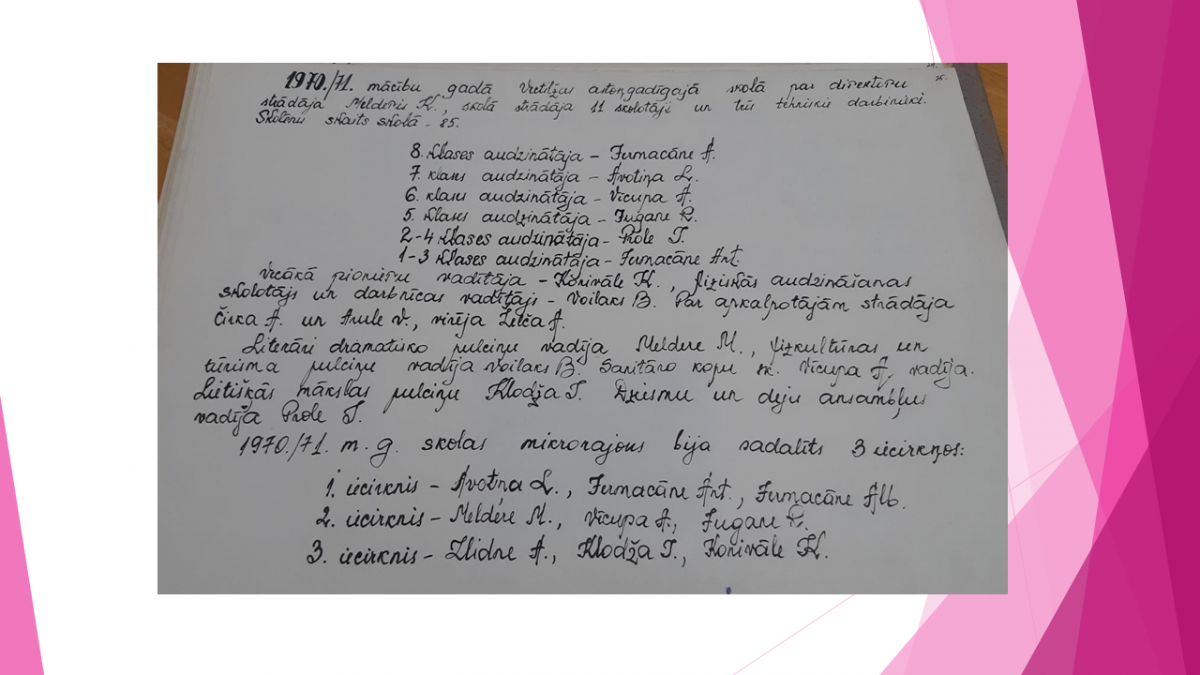 1970./71. mācību gadā Vietižas astoņgadīgajā skolā par direktoru
strādāja Melderis K., skolā strādāja 11 skolotāji un trīs tehniskie darbinieki.
Skolēnu skaits skolā - 85.
8. klases audzinātāja - Fumacāne A.
7. klases audzinātāja - Avotiņa L.
6. klases audzinātāja - Vīcupa A.
5. klases audzinātāja - Fugane R.
2-4 klases audzinātāja - Prole T.
1-3 klases audzinātāja - Fumacāne Ant.
Vecākā pionieru vadītāja - Konivāle K., fiziskās audzināšanas
skolotājs un darbnīcas vadītājs - Voilaks B. Par apkalpotājām strādāja
Čirka A. un Anule V., virēja Zelča A.
Literāri dramatisko pulciņu vadīja Meldere M., fizkultūras un
tūrisma pulciņu vadīja Voilaks B. Sanitāro kopu sk. Vīcupa A, vadīja.
Lietišķās mākslas pulciņu Klodža T. Dziesmu un deju ansambļus
vadīja Prole T.
1970./71. m. g. skolas mikrorajons bija sadalīts 3 iecirkņos:
1. iecirknis - Avotiņa L., Fumacāne Ant., Fumacāne Alb.
2. iecirknis - Meldere M., Vīcupa A., Fugane R.
3. iecirknis - Zlidne A., Klodža T., Konivāle K.